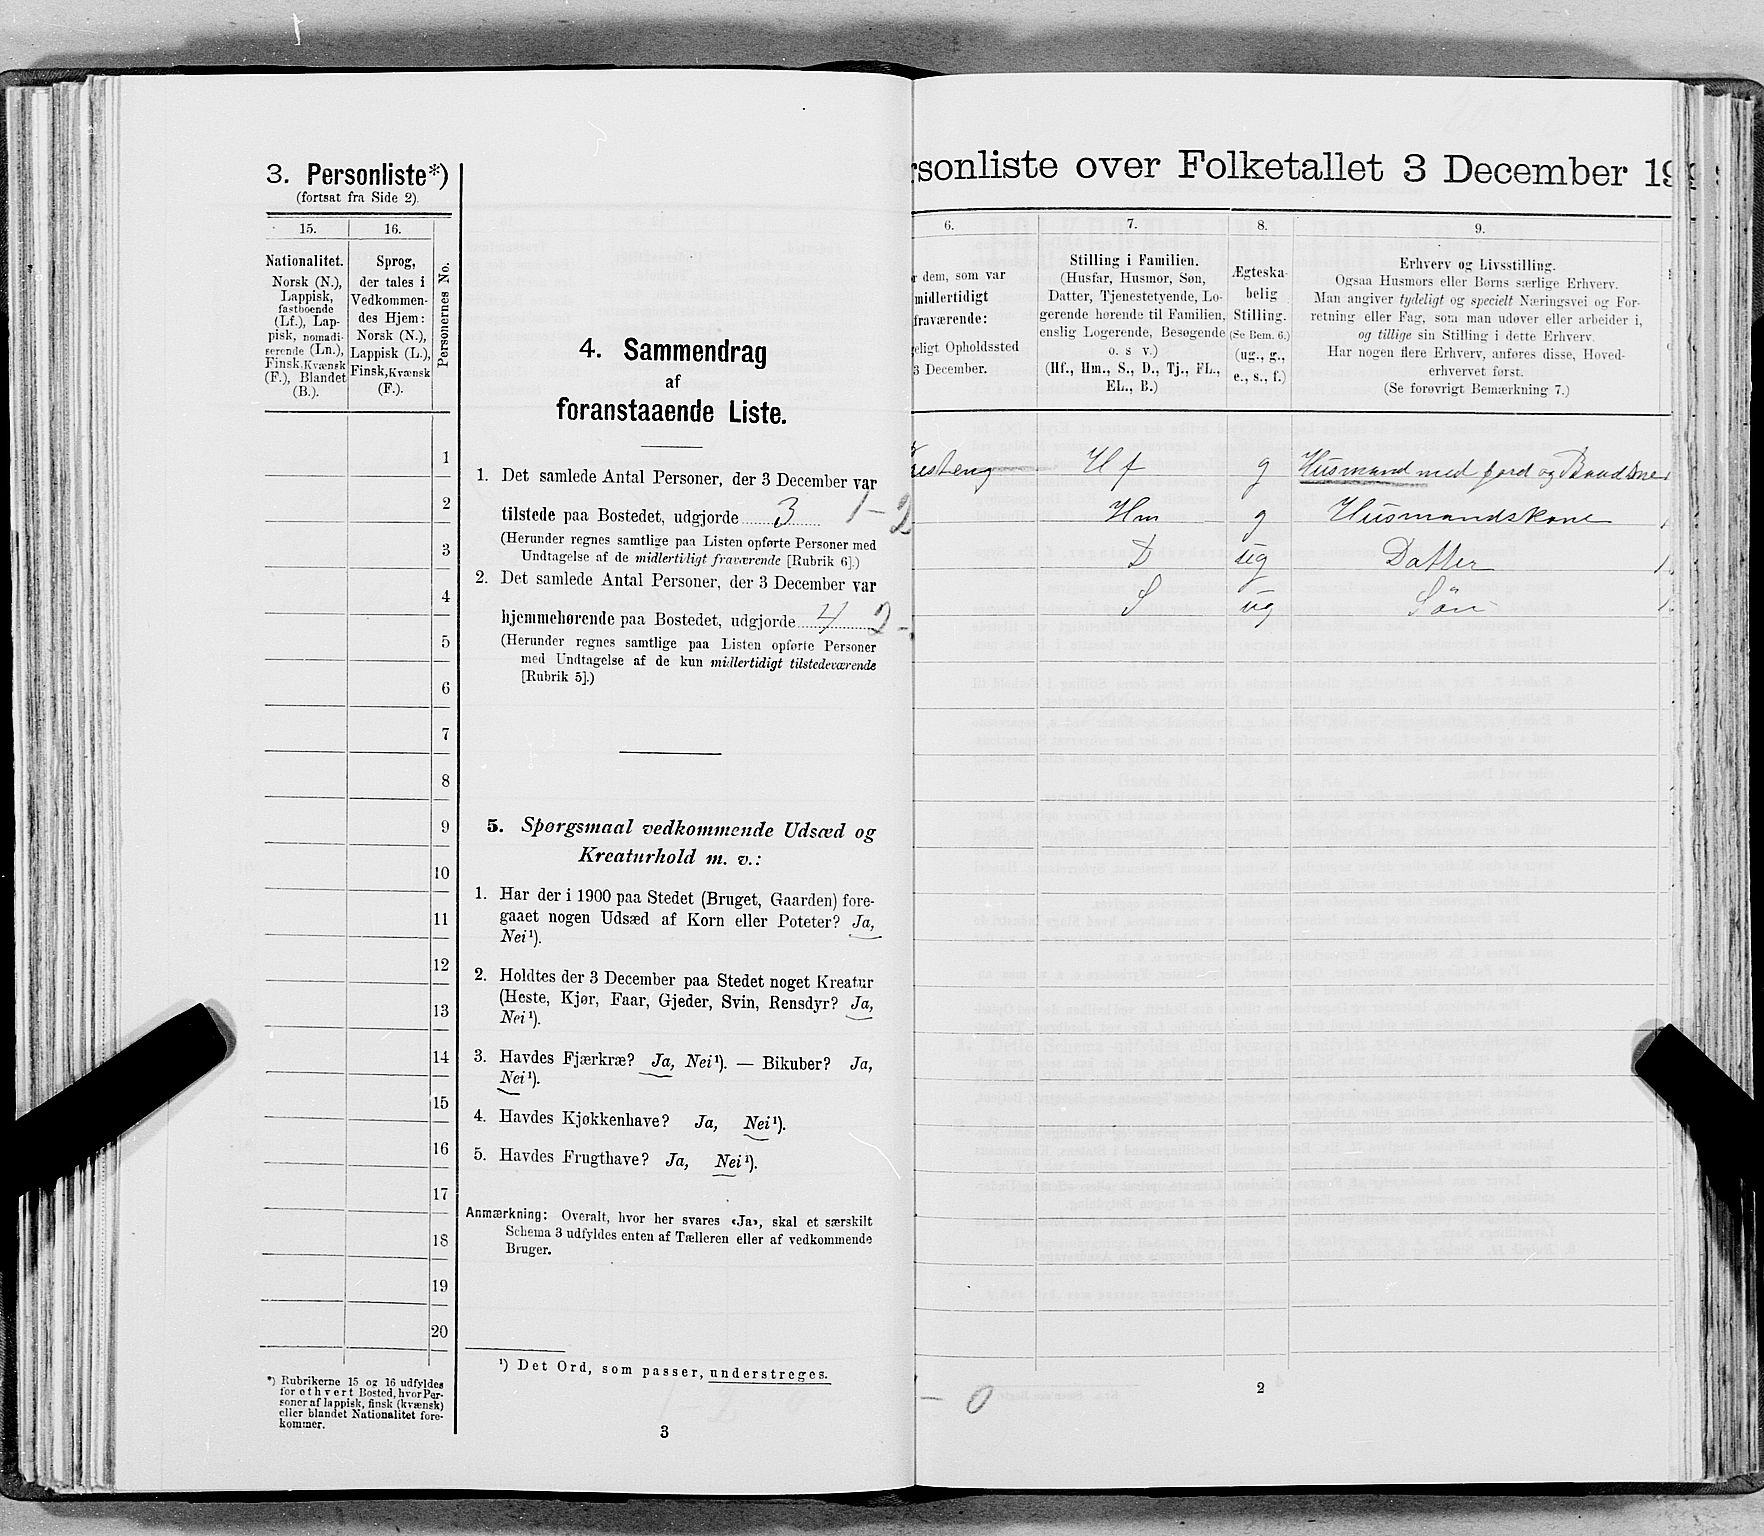 3. Personliste*)
(fortsat fra Side 2).
15.
16.
Nationalitet.
Norsk (N.),
Lappisk,
fastboende
(Lf.), Lap-
pisk, nomadi-
serende (Ln.),
Finsk, Kvænsk
(F.), Blandet
(B.).
Sprog,
der tales i
Vedkommen-
des Hjem:
Norsk (N.),
Lappisk (L.),
Finsk, Kvænsk
(F.).
Personernes No.
1
2
3
4
5
6
7
8
9
10
11
12
13
14
15
16
17
18
19
20
*) Rubrikerne 15 og 16 udfyldes
for ethvert Bosted, hvor Per-
soner af lappisk, finsk (kvænsk)
eller blandet Nationalitet fore-
kommer.
4. Sammendrag
af
foranstaaende Liste.
1. Det samlede Antal Personer, der 3 December var
tilstede paa Bostedet, udgjorde 3 1-2
(Herunder regnes samtlige paa Listen opførte Personer med
Undtagelse af de midlertidigt fraværende [Rubrik 6].)
2. Det samlede Antal Personer, der 3 December var
hjemmehørende paa Bostedet, udgjorde 4 2-
(Herunder regnes samtlige paa Listen opførte Personer
med Undtagelse af de kun midlertidigt tilstedeværende
[Rubrik 5].)
5. Spørgsmaal vedkommende Udsæd og
Kreaturhold m. v.:
1. Har der i 1900 paa Stedet (Bruget, Gaarden) fore-
gaaet nogen Udsæd af Korn eller Poteter? Ja,
Nei¹).
2. Holdtes der 3 December paa Stedet noget Kreatur
(Heste, Kjør, Faar, Gjeder, Svin, Rensdyr? Ja,
Nei¹).
3. Havdes Fjærkræ? Ja, Nei¹). — Bikuber? Ja,
Nei¹).
4. Havdes Kjøkkenhave? Ja, Nei¹).
5. Havdes Frugthave? Ja, Nei¹).
Anmærkning: Overalt, hvor her svares «Ja», skal et særskilt
Schema 3 udfyldes enten af Tælleren eller af vedkommende
Bruger.
¹) Det Ord, som passer, understreges.
3
rsonliste over Folketallet 3 December 19
6.
7.
8.
9.
r dem, som var
midlertidigt
fraværende:
eligt Opholdssted
3 December.
Stilling i Familien.
(Husfar, Husmor, Søn,
Datter, Tjenestetyende, Lo-
gerende hørende til Familien,
enslig Logerende, Besøgende
o. s v.)
(Hf., Hm., S., D., Tj., FL.,
EL., B.)
Ægteska-
belig
Stilling.
(Se Bem. 6.)
(ug., g.,
e., s., f.)
Erhverv og Livsstilling.
Ogsaa Husmors eller Børns særlige Erhverv.
Man angiver tydeligt og specielt Næringsvei og For-
retning eller Fag, som man udøver eller arbeider i,
og tillige sin Stilling i dette Erhverv.
Har nogen flere Erhverv, anføres disse, Hoved-
erhvervet først.
(Se forøvrigt Bemærkning 7.)
Hf g Husmand med jord og
Hm g Husmandskone
D ug Datter
S ug Søn
- 0
2